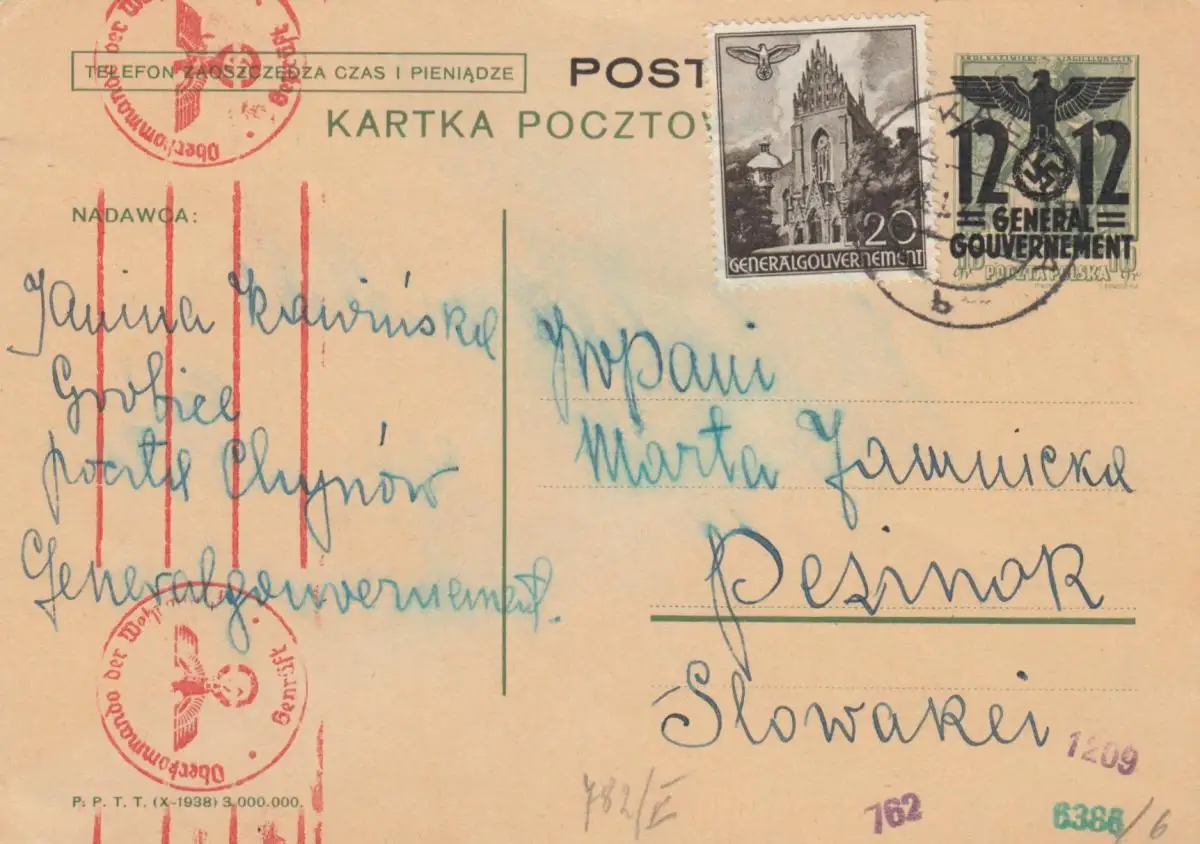 TELEFON ZAOSZCZĘDZA CZAS I PIENIĄDZE
POST
KARTKA POCZTO
GENERALGOUVERNEMENT
20
12 12
GENERAL
GOUVERNEMENT
10 gr POCZTA POLSKA 10 gr
NADAWCA:
Janina
Grobice
poczta Chynów
Generalgouvernement.
WPani
Marta Jamnicka
Pezinok
Slowakei
Oberkommando der Geprüft
Oberkommando der Geprüft
b
P. P. T. T. (X-1938) 3.000.000.
782/V
762
1209
6386/6